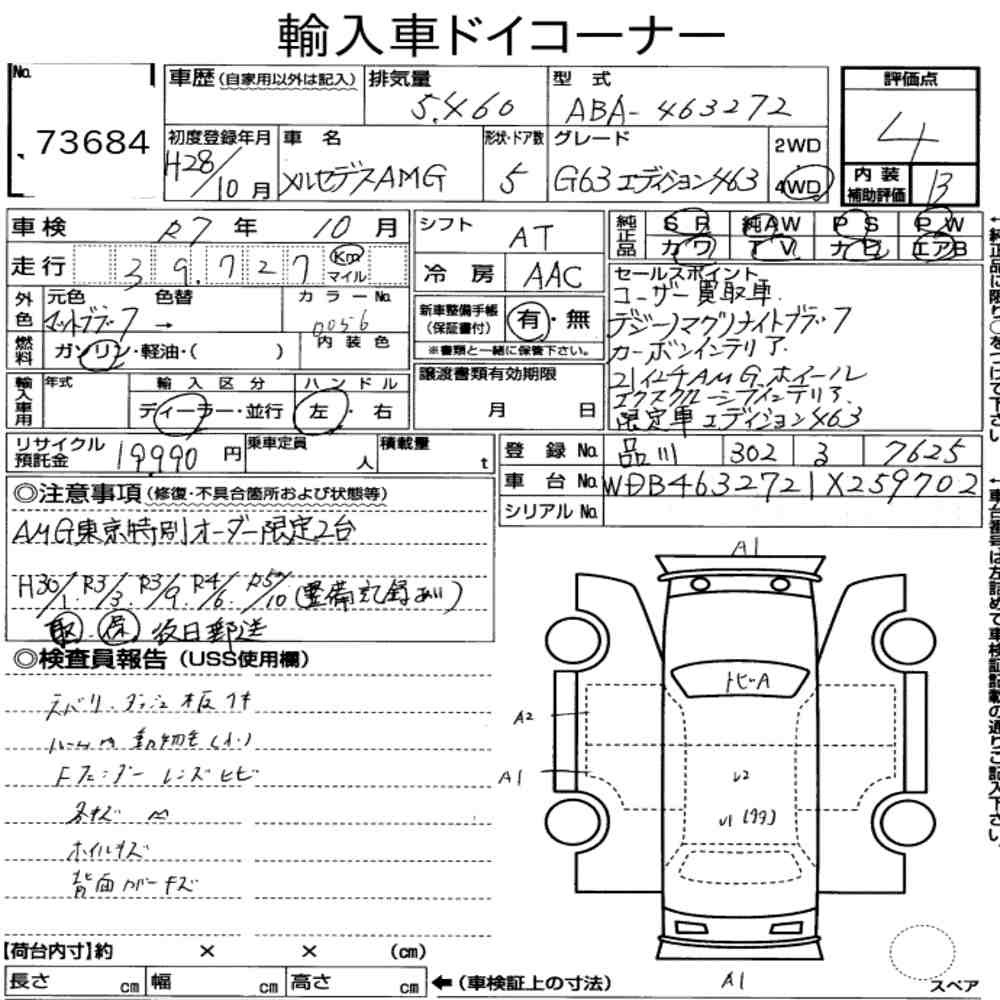 輸入車ドイコーナー
No.
73684
車歴(自家用以外は記入)
排気量
5,460
型式
ABA-463272
評価点
4
初度登録年月
H28/10月
車名
メルセデスAMG
形状・ドア数
5
グレード
G63 エディション463
2WD
4WD
内装補助評価
B
車検
R7年 10月
シフト
AT
純正品
SR 純AW PS PW
カワ TV ナビ エアB
走行
39,727 Km マイル
冷房
AAC
セールスポイント
ユーザー買取車
デジーノマグノナイトブラック
カーボンインテリア
21インチAMGホイール
エクスクルーシブインテリア
限定車エディション463
外色
元色
色替
カラーNo.
マットブラック →
0056
新車整備手帳
(保証書付)
有・無
※書類と一緒に保管下さい。
燃料
ガソリン・軽油・( )
内装色
輸入車用
年式
輸入区分
ハンドル
ディーラー・並行
左・右
譲渡書類有効期限
月 日
リサイクル預託金
19,990円
乗車定員
人
積載量
t
登録No.
品川 302 る 7625
車台No.
WDB4632721X259702
シリアルNo.
◎注意事項(修復・不具合箇所および状態等)
AMG東京特別オーダー限定2台
H30/1. R3/3. R3/9. R4/6. R5/10 (整備記録あり)
取.保 後日郵送
◎検査員報告(USS使用欄)
ルーム内 動物毛(小)
Fフェンダー レンズヒビ
ホイルキズ
背面カバーキズ
A1
トビーA
A2
A1
U2
U1
A1
スペア
【荷台内寸】約 × × (cm)
長さ cm 幅 cm 高さ cm ←(車検証上の寸法)
←純正品に限り○をつけて下さい。
←車台番号は左詰めで車検証記載の通りご記入下さい。